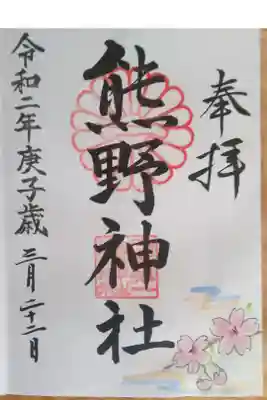 奉拝
熊野神社
令和二年庚子歳三月二十二日